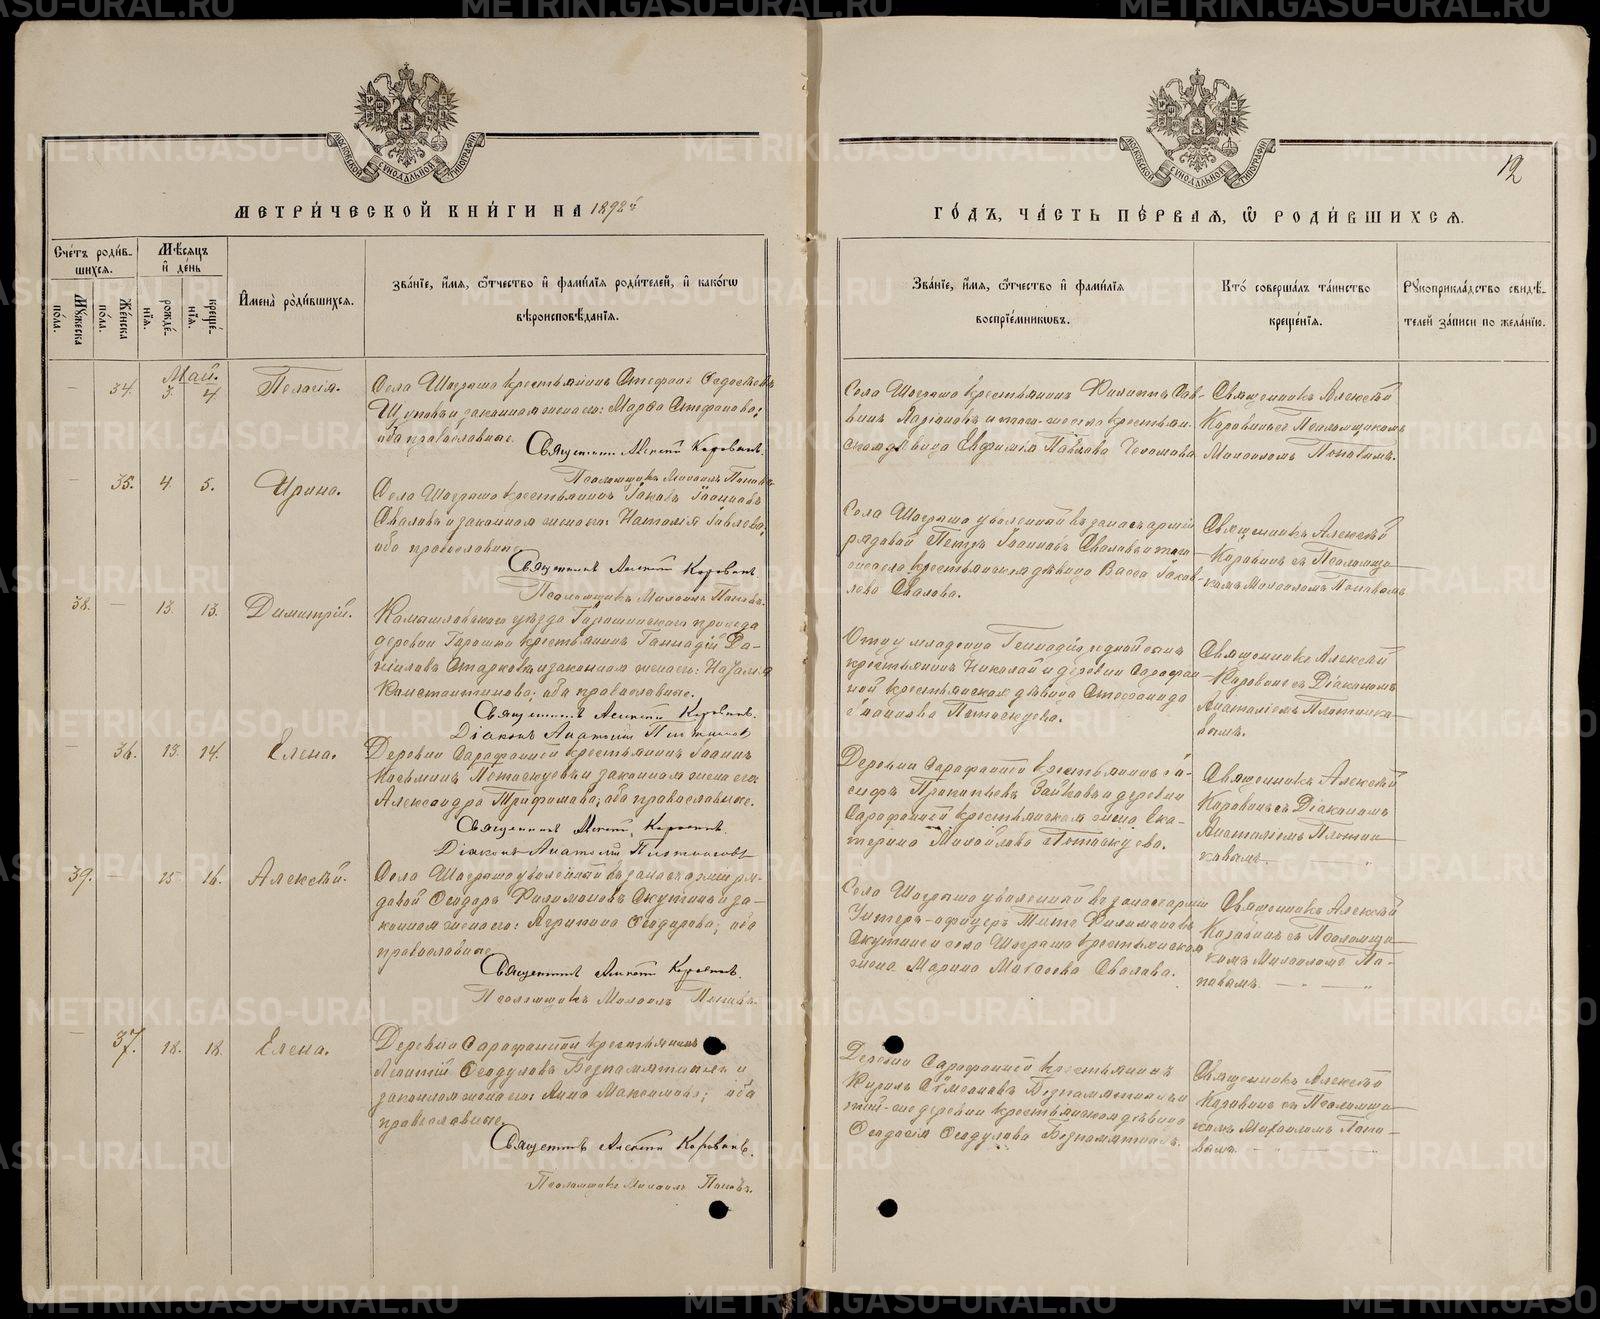 МЕТРИ́ЧЕСКОЙ КНИ́ГИ НА 1892й
Сче́тъ роди́вшихся.
Му́жеска по́ла.
Же́нска по́ла.
Мѣ́сяцъ и̑ де́нь
рожде́нїя.
креще́нїя.
И̑мена̀ роди́вшихся.
Зва́нїе, и̑́мя, ѻ҆́тчество и̑ фами́лїя роди́телей, и̑ како́гѡ вѣроисповѣ́данїя.
Май.
— 34. 3. 4 Пелагія.
Села крестьянинъ Стефанъ
и законная жена его: Марѳа Стефанова;
оба православные.
Священникъ Алексѣй Коровинъ.
Псаломщикъ Михаилъ Поповъ
— 35. 4. 5. Ирина.
Села крестьянинъ Іаковъ Іоанновъ
Сваловъ и законная жена его: Наталія
оба православные.
Священникъ Алексѣй Коровинъ.
Псаломщикъ Михаилъ Поповъ.
38. — 13. 13. Димитрій.
Камышловскаго уѣзда прихода
деревни крестьянинъ Геннадій Да-
ніиловъ Старковъ и законная жена его: Наталія
Константинова; оба православные.
Священникъ Алексѣй Коровинъ.
Діаконъ Анатолій Плотниковъ
— 36. 13. 14. Елена.
Деревни Сарафанной крестьянинъ Іоаннъ
Косьминъ и законная жена его:
Александра Трифонова; оба православные.
Священникъ Алексѣй Коровинъ.
Діаконъ Анатолій Плотниковъ
39. — 15. 16. Алексѣй.
Села уволенный въ запасъ арміи ря-
довой Ѳеодоръ Филимоновъ Скутинъ и за-
конная жена его: Агрипина Ѳеодорова; оба
православные.
Священникъ Алексѣй Коровинъ.
Псаломщикъ Михаилъ Поповъ.
— 37. 18. 18. Елена.
Деревни Сарафанной крестьянинъ
Леонтій Ѳеодуловъ Безпамятныхъ и
законная жена его: Анна Максимова; оба
православные.
Священникъ Алексѣй Коровинъ.
Псаломщикъ Михаилъ Поповъ.
ГО́ДЪ, ЧА́СТЬ ПЕ́РВАЯ, Ѡ҆ РОДИ́ВШИХСЯ.
12
Зва́нїе, и̑́мя, ѻ҆́тчество и̑ фами́лїя воспрїе́мниковъ.
Кто̀ соверша́лъ та́инство креще́нїя.
Рꙋкоприкла́дство свидѣ́телей за́писи по жела́нїю.
Села крестьянинъ Филиппъ Сав-
винъ Ларіоновъ и того-же села крестьян-
ская дѣвица Евфимія Павлова
Священникъ Алексѣй
Коровинъ съ Псаломщикомъ
Михаиломъ Поповымъ.
Села уволенный въ запасъ арміи
рядовой Петръ Іоанновъ Сваловъ и того
же села крестьянская дѣвица Васса Іаков-
лева Свалова.
Священникъ Алексѣй
Коровинъ съ Псаломщи-
комъ Михаиломъ Поповымъ
Отцу младенца Геннадію родной сынъ
крестьянинъ Николай и деревни Сарафан-
ной крестьянская дѣвица Стефанида
Іоаннова
Священникъ Алексѣй
Коровинъ съ Діакономъ
Анатоліемъ Плотнико-
вымъ.
Деревни Сарафанной крестьянинъ Іо-
сифъ Прокопьевъ Зайковъ и деревни
Сарафанной крестьянская жена Ека-
терина Михайлова
Священникъ Алексѣй
Коровинъ съ Діакономъ
Анатоліемъ Плотни-
ковымъ. — "
Села уволенный въ запасъ арміи
Унтеръ-офицеръ Титъ Филимоновъ
Скутинъ и села крестьянская
жена Марина Матѳеева Свалова.
Священникъ Алексѣй
Коровинъ съ Псаломщи-
комъ Михаиломъ По-
повымъ. — " — "
Деревни Сарафанной крестьянинъ
Кириллъ Сѵмеоновъ Безпамятныхъ и
той-же деревни крестьянская дѣвица
Ѳеодосія Ѳеодулова Безпамятныхъ.
Священникъ Алексѣй
Коровинъ съ Псаломщи-
комъ Михаиломъ Попо-
вымъ. — " — "
МОСКОВСКОЙ СѴНОДАЛЬНОЙ ТИПОГРАФІИ
МОСКОВСКОЙ СѴНОДАЛЬНОЙ ТИПОГРАФІИ
METRIKI.GASO-URAL.RU